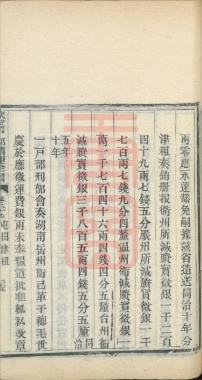 兩零應永遠豁免嗣據該省造送同治十年分
津租奏銷册報衢州所減賸實徵銀一千二百
四十九兩七錢五分嚴州所減賸實徵銀一
七百兩七錢九分四釐温州衛減賸實徵銀一
萬一千七百四十六兩四錢四分台州衛
減賸實徵銀三千八百五兩四錢五分五釐同
五年
十年
一戶部刑部會奏湖南岳州衛已革千總毛世
慶於應徵運費銀兩未奉糧道批准輒私改章
屯田津租